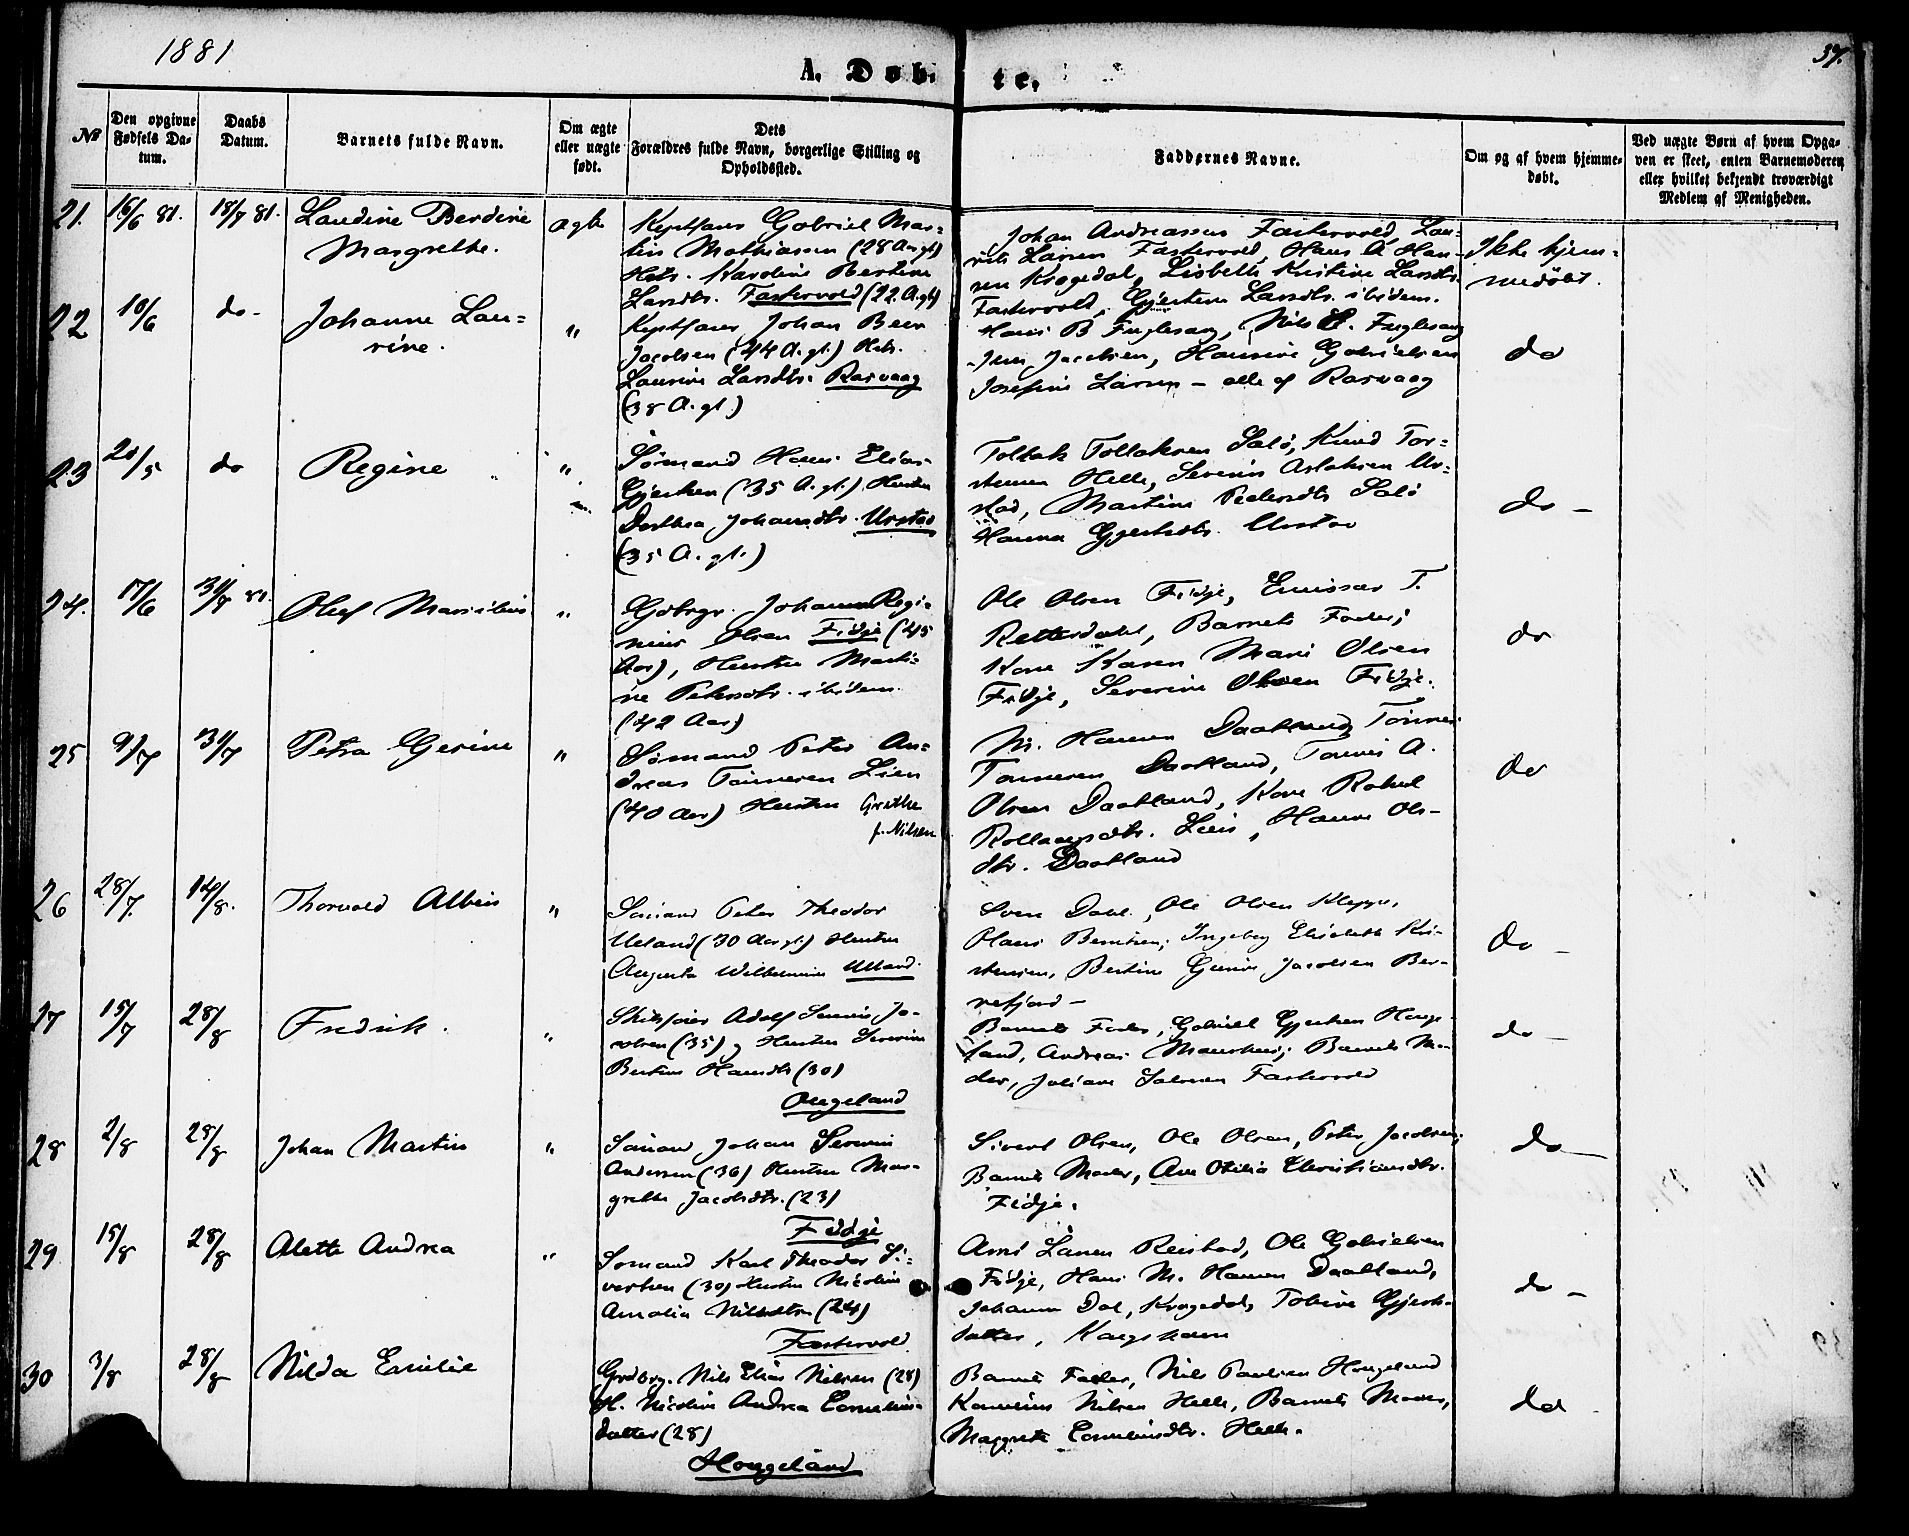 1881
A. Døbte.
37.
№
Den opgivne Fødsels Datum.
Daabs Datum.
Barnets fulde Navn.
Om ægte eller uægte født.
Dets Forældres fulde Navn, borgerlige Stilling og Opholdssted.
Faddernes Navne.
Om og af hvem hjemmedøbt.
Ved uægte Børn af hvem Opgaven er skeet, enten Barnemoderen eller hvilket bekjendt troværdigt Medlem af Menigheden.
21. 16/6 81. 18/7 81. Laudine Berdine
Margrethe.
ægte
Gabriel Mar-
tin Mathiassen (28 A. gl)
Hstr. Karoline Bertine
Larsdtr. Fastervold (22 A. gl)
Johan Andreassen Fastervold, Lau-
rits Larsen Fastervold, Hans A Han-
sen Kragedal, Lisbeth Kristine Larsdtr.
Fastervold, Larsdtr. ibidem.
Ikke hjem-
medøbt.
22 10/6 do - Johanne Lau-
rine.
"
Johan Beer
Jacobsen (44 A. gl.) Hstr.
Laurine Larsdtr. Rasvaag
(38 A. gl)
Hans B Fuglesang, Nils Fuglesang
Jens Jacobsen, Hansine Gabrielsen
Josefine Larsen - alle af Rasvaag
do
23 20/5 do Regine
"
Sømand Hans Elias
Gjertsen (35 A. gl.) Hustru
Dorthea Johansdtr. Urstad
(35 A. gl.)
Tollak Tollaksen Salø, Knud Tor-
stensen Helle, Severin Aslaksen Ur-
stad, Martine Pedersdtr Salø
Hanna Gjertsdtr. Urstad
do -
24. 17/6 31/7 81. Oluf Marsilius
"
Gbrgr. Johannes Regi-
nius Olsen Fidje (45
Aar), Hustru Marti-
ne Petersdtr. ibidem.
(42 Aar)
Ole Olsen Fidje, Emissær T.
Rettedahl, Barnets Fader;
Kone Karen Marie Olsen
Fidje, Severine Olsen Fidje.
do
25 9/7 31/7 Petra Gesine
"
Sømand Peter An-
dreas Tønnesen Lien
(40 Aar) Hustru Grethe
f. Nilsen
M. Hansen Daatland, Tønnes
Tønnesen Daatland, Tønnes A.
Olsen Daatland, Kone Rakel
Rollaugsdtr. Lien, Hanne Ols-
dtr. Daatland
do
26 28/7. 14/8. Thorvald Albin
"
Sømand Peter Theodor
Ueland (30 Aar gl.) Hustru
Augusta Wilhelmine Ueland.
Sven Dahl, Ole Olsen Kleppe,
Olaus Berntsen, Ingeborg Elisabeth Kri-
stensen, Bertine Jacobsen Ber-
refjord -
do -
27 15/7 28/8 Fredrik.
"
Adolf Ja-
cobsen (35) og Hustru Severine
Bertine Hansdtr (30)
Ougeland
Barnets Fader, Gabriel Gjertsen Houge-
land, Andreas Barnets Mo-
der, Juliane Salvesen Fastervold
do -
28 2/8 28/8 Johan Martin
"
Sømand Johan Severin
Andersen (36) Hustru Mar-
grethe Jacobsdtr. (23)
Fidje
Sivert Olsen, Ole Olsen, Peter Jacobsen,
Barnets Moder, Ane Otilia Christiansdtr.
Fidje.
do -
29 15/8 28/8 Alette Andrea
"
Sømand Karl Theodor Si-
vertsen (30) Hustru Nicoline
Amalia Nilsdtr (24)
Fastervold
Arnt Larsen Reistad, Ole Gabrielsen
Fidje, Hans M. Hansen Daatland,
Johanne Dal, Kragedal, Tobine Gjerts-
datter, Kongshavn
do -
30 3/8 28/8 Nilda Emilie
Grdbrg. Nils Elias Nilsen (28)
H. Nicoline Andrea Cornelius-
datter (28)
Hougeland
Barnets Fader, Nils Paulsen Hougeland
Kornelius Nilsen Helle, Barnets Moder,
Margrete Corneliusdtr. Helle.
do